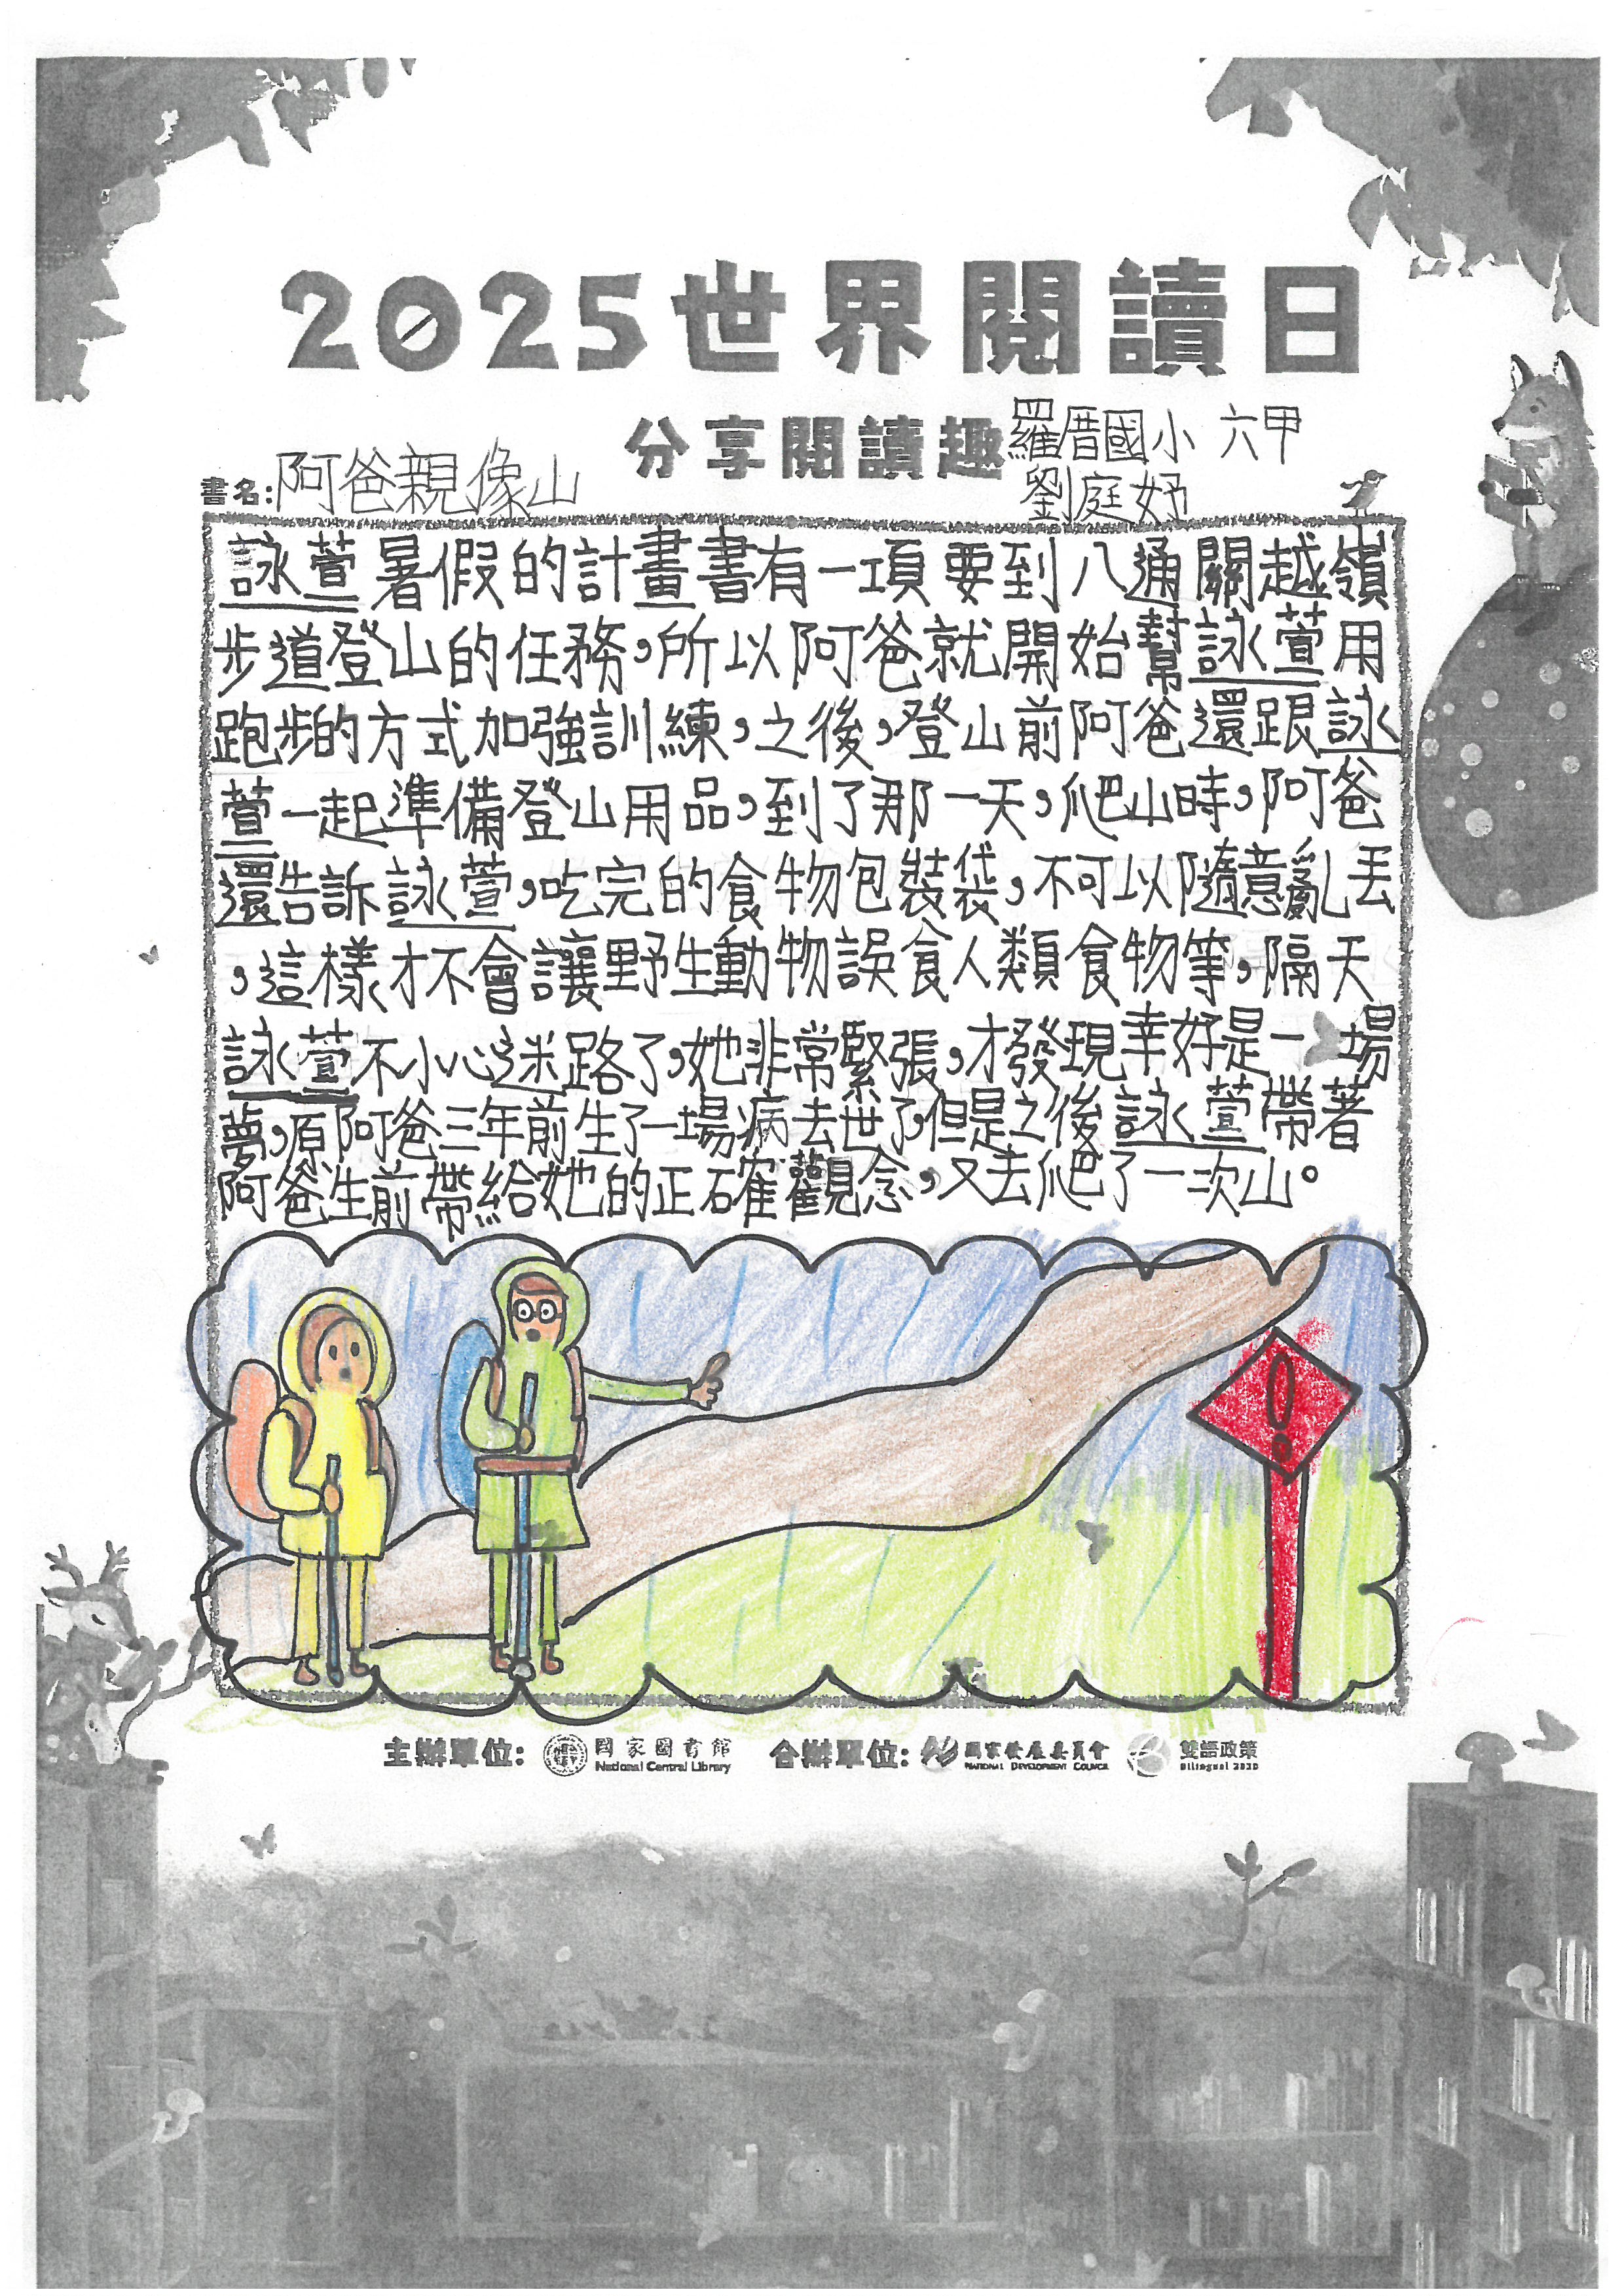 2025世界閱讀日
分享閱讀趣
羅厝國小 六甲
劉庭妤
書名:阿爸親像山
詠萱暑假的計畫書有一項要到八通關越嶺
步道登山的任務,所以阿爸就開始幫詠萱用
跑步的方式加強訓練,之後,登山前阿爸還跟詠
萱一起準備登山用品,到了那一天,爬山時,阿爸
還告訴詠萱,吃完的食物包裝袋,不可以隨意亂丟
,這樣才不會讓野生動物誤食人類食物等,隔天
詠萱不小心迷路了,她非常緊張,才發現幸好是一場
夢,原阿爸三年前生了一場病去世了,但是之後詠萱帶著
阿爸生前帶給她的正確觀念,又去爬了一次山。
!
主辦單位: 國家圖書館 合辦單位: 國家發展委員會 雙語政策
National Central Library NATIONAL DEVELOPMENT COUNCIL Bilingual 2030